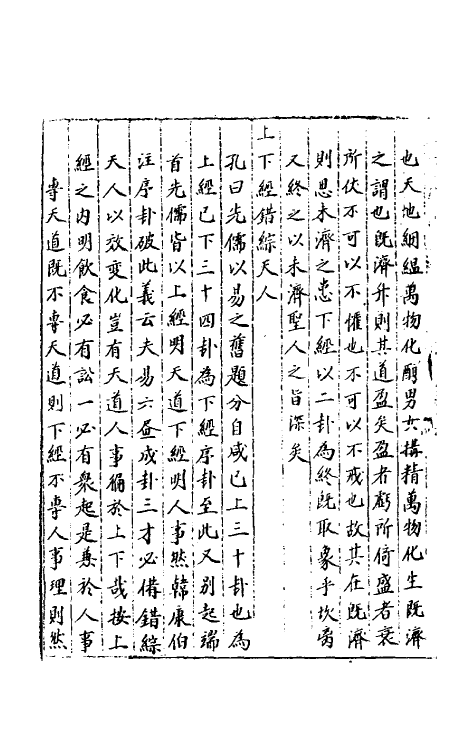 也天地絪緼萬物化醇男女搆精萬物化生既濟
之謂也既濟升則其道盈矣盈者虧所倚盛者衰
所伏不可以不懼也不可以不戒也故其在既濟
則思未濟之患下經以二卦為終既取象乎坎离
又終之以未濟聖人之旨深矣
上下經錯綜天人
孔曰先儒以易之舊題分自咸已上三十卦也為
上經已下三十四卦為下經序卦至此又别起端
首先儒皆以上經明天道下經明人事然韓康伯
注序卦破此義云夫易六畫成卦三才必備錯綜
天人以效变化豈有天道人事偏於上下哉按上
經之内明飲食必有訟一必有衆起是兼於人事
專天道既不專天道則下經不專人事理則然